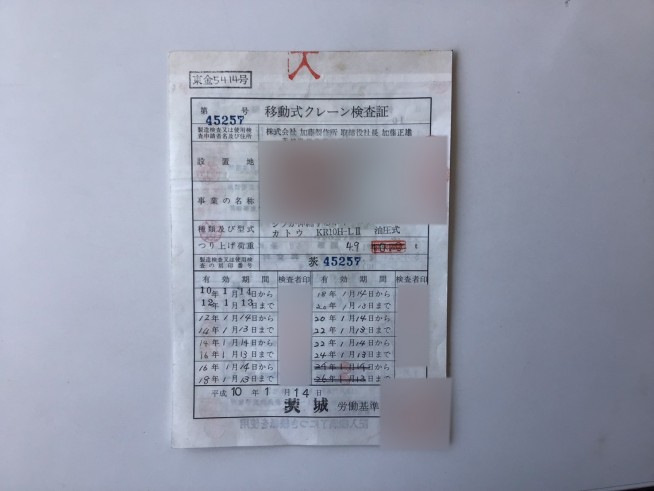 東金5414号
第 号 移動式クレーン検査証
45257
製造検査又は使用検査申請者名及び住所 株式会社 加藤製作所 取締役社長 加藤正雄
設置地
事業の名称
種類及び型式 カトウ KR10H-LⅡ 油圧式
つり上げ荷重 4.9 t
製造検査又は使用検査の刻印番号 茨 45257
有効期間 検査者印 有効期間 検査者印
10年1月14日から 18年1月14日から
12年1月13日まで 20年1月13日まで
12年1月14日から 20年1月14日から
14年1月13日まで 22年1月13日まで
14年1月14日から 22年1月14日から
16年1月13日まで 24年1月13日まで
16年1月14日から
18年1月13日まで
平成10年1月14日
茨城 労働基準